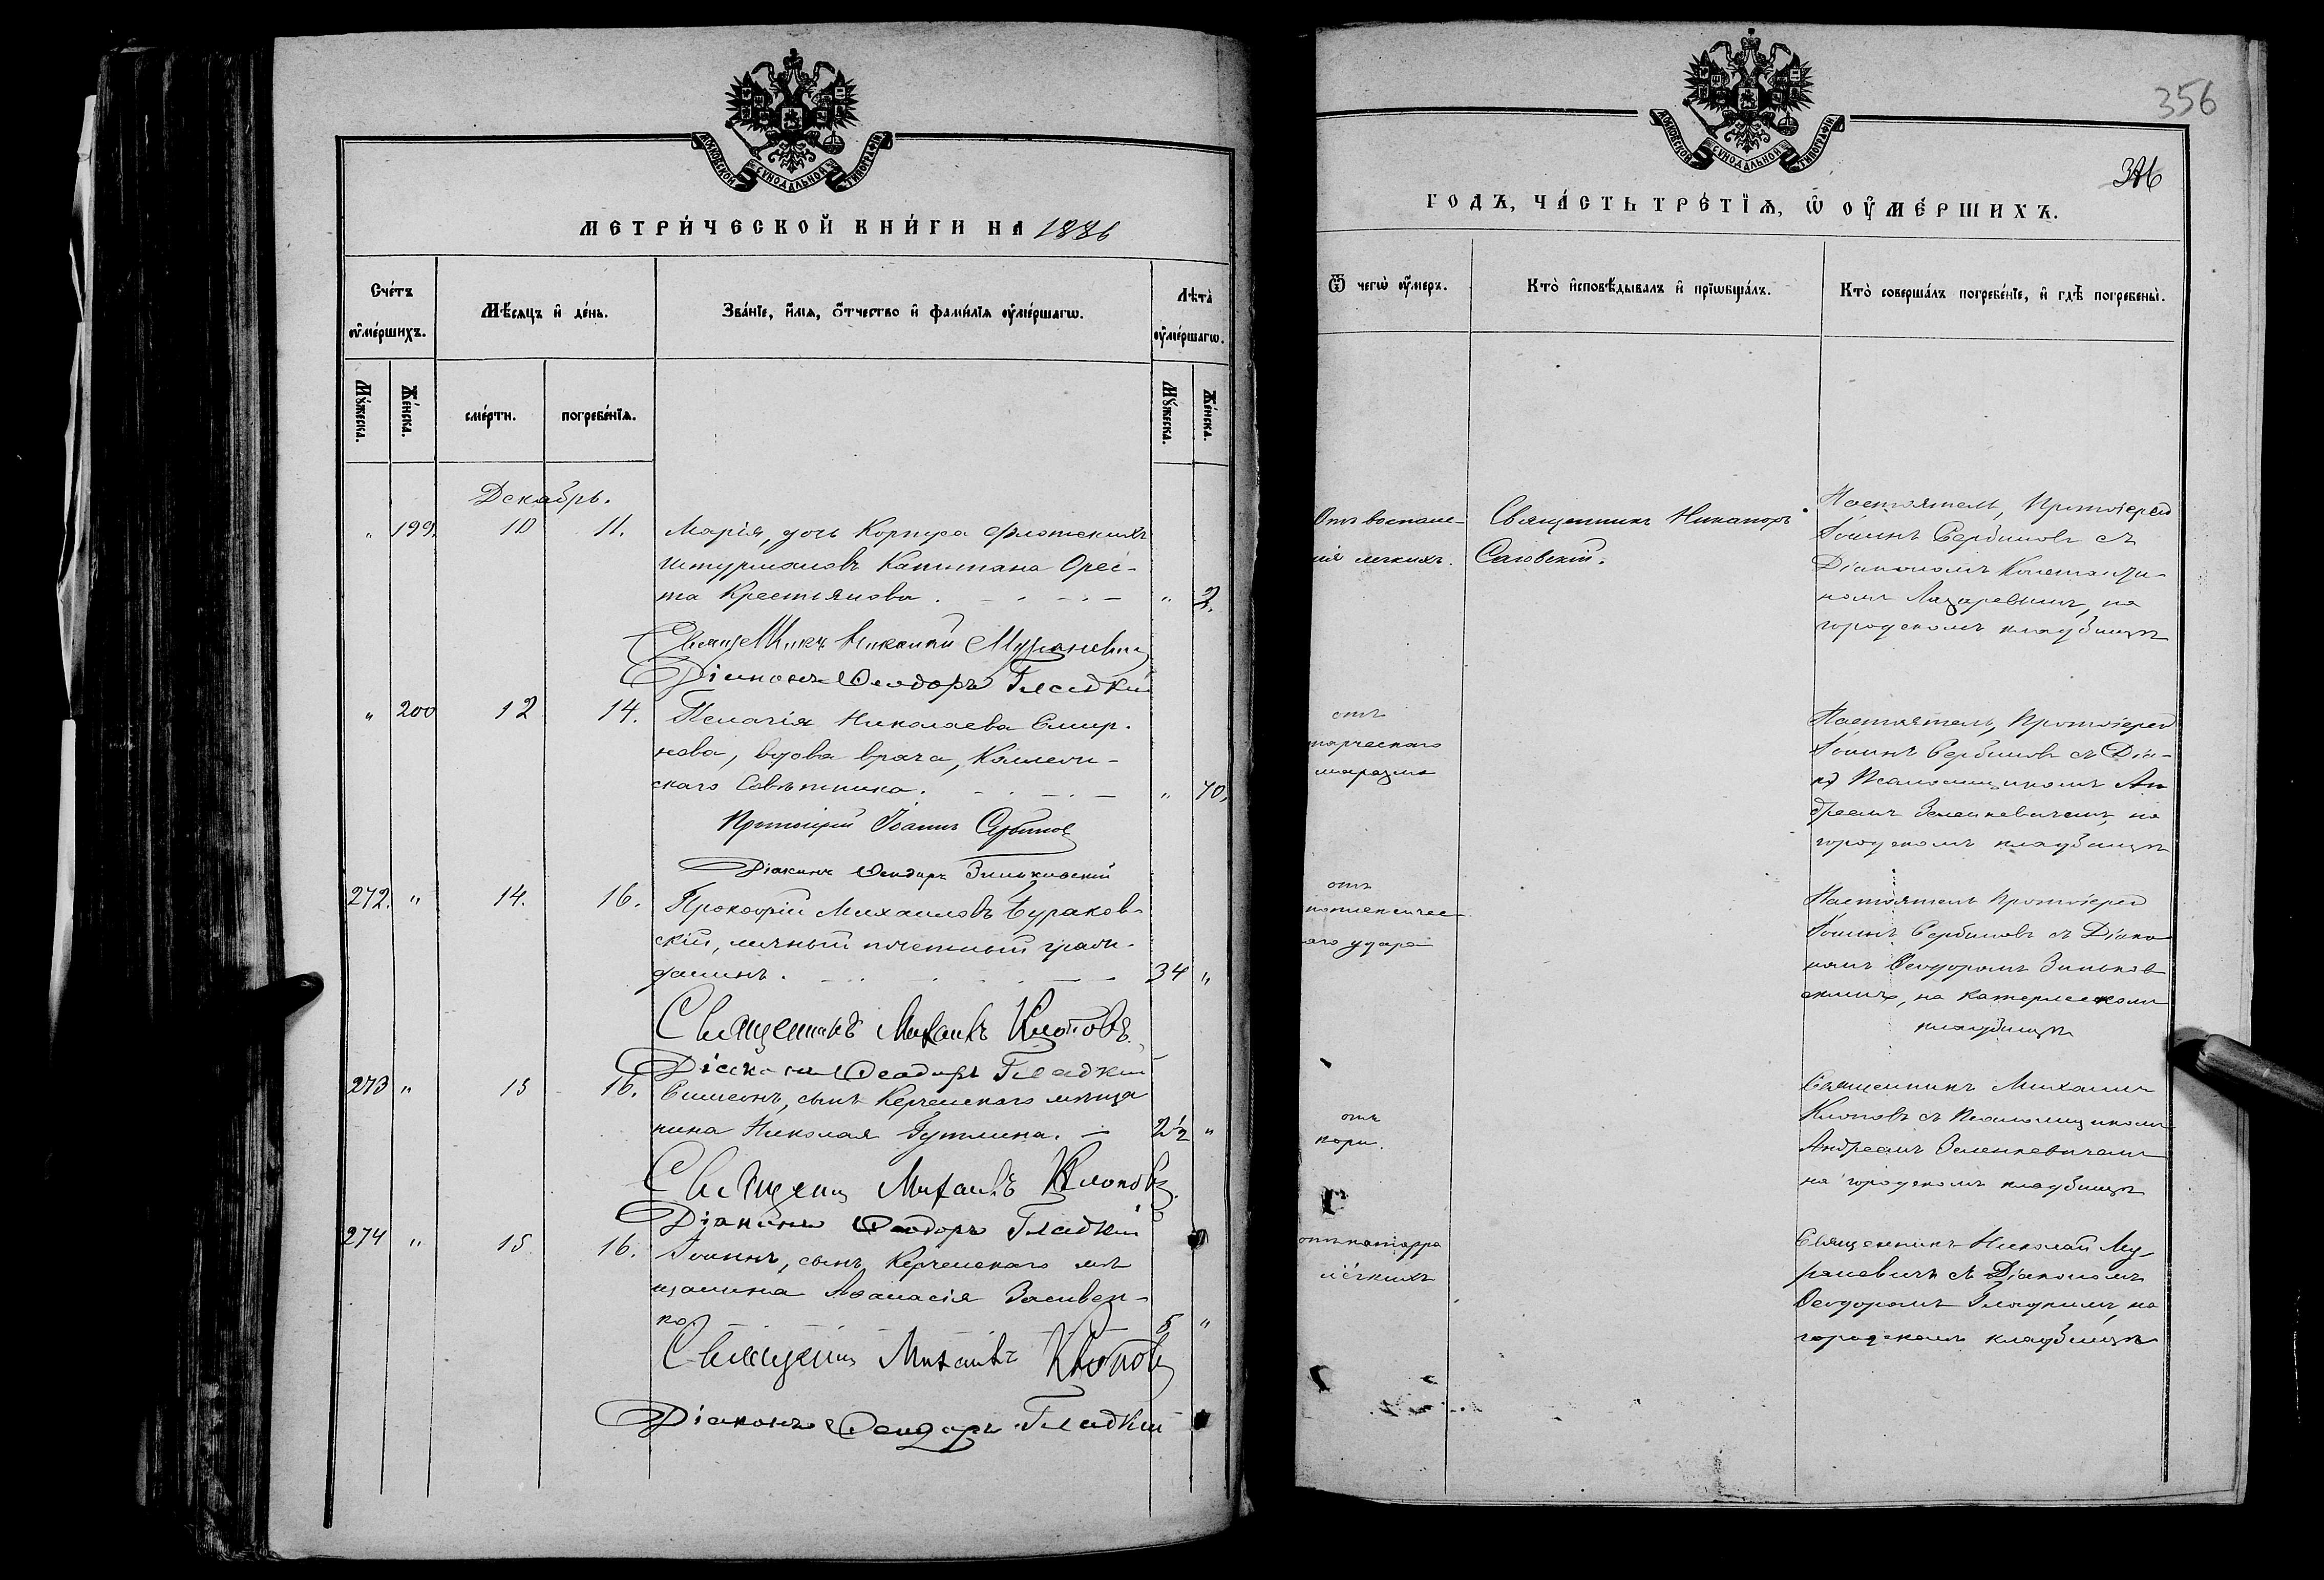 МОСКОВСКОЙ СУНОДАЛЬНОЙ ТИПОГРАФІИ
МЕТРИ́ЧЕСКОЙ КНИ́ГИ НА 1886
Сче́тъ оумéршихъ.
Мѣ́сяцъ и де́нь.
Зва́нїе, и́мя, о́тчество и фами́лїя оумéршагѡ.
Лѣ́та оумéршагѡ.
Му́жеска.
Же́нска.
сме́рти.
погребе́нїя.
Му́жеска.
Же́нска.
Декабрь.
" 199. 10 11. Марія, дочь Корпуса Флотскихъ
Штурмановъ Капитана Орес-
та Крестьянова. " 2.
Священникъ Николай Мураневичъ
Діаконъ Ѳеодоръ Гладкій
" 200 12 14. Пелагія Николаева Смир-
нова, вдова врача, Коллеж-
скаго Совѣтника. " 70.
Протоіерей Іоаннъ Сербиновъ
Діаконъ Ѳеодоръ Зиньковскій
272. " 14. 16. Прокофій Михаиловъ Бураков-
скій, личный почетный граж-
данинъ. 34 "
Священникъ Михаилъ Клоповъ.
Діаконъ Ѳеодоръ Гладкій
273 " 15 16. Симеонъ, сынъ Керченскаго мѣща
нина Николая Гутлина. 2 1/2 "
Священ Михаилъ Клоповъ.
Діаконъ Ѳеодоръ Гладкій
274 " 15 16. Іоаннъ, сынъ Керченскаго мѣ
щанина Аѳанасія
ко 5 "
Священ Михаилъ Клоповъ
Діаконъ Ѳеодоръ Гладкій
356
МОСКОВСКОЙ СУНОДАЛЬНОЙ ТИПОГРАФІИ
ГОДЪ, ЧА́СТЬ ТРЕ́ТЇЯ, Ѡ ОУМЕ́РШИХЪ.
Ѿ чегѡ оу́меръ.
Кто̀ исповѣ́дывалъ и прїѡбща́лъ.
Кто̀ соверша́лъ погребе́нїе, и гдѣ̀ погребены̀.
Отъ воспале-
нія легкихъ.
Священникъ Никаноръ
Саковскій.
Настоятель, Протоіерей
Іоаннъ Сербиновъ съ
Діакономъ Константи
номъ Лазаревымъ, на
городскомъ кладбищѣ
отъ
старческаго
маразма
Настоятель, Протоіерей
Іоаннъ Сербиновъ съ Діа-
Псаломщикомъ Ан
дреемъ Зеленкевичемъ, на
городскомъ кладбищѣ
отъ
апоплексичес
каго удара
Настоятель Протоіерей
Іоаннъ Сербиновъ съ Діако
номъ Ѳеодоромъ Зиньков
скимъ, на
кладбищѣ
отъ
кори.
Священникъ Михаилъ
Клоповъ съ Псаломщикомъ
Андреемъ Зеленкевичемъ
на городскомъ кладбищѣ
отъ катарра
легкихъ
Священникъ Николай Му-
раневичъ съ Діакономъ
Ѳеодоромъ Гладкимъ, на
городскомъ кладбищѣ